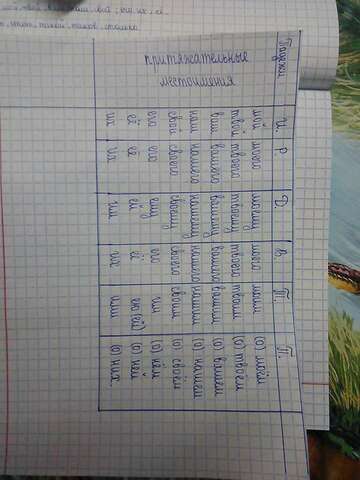 Падежи
притяжательные
местоимения
И. Р. Д. В. Т. П.
мой моего моему моего моим (о) моём
твой твоего твоему твоего твоим (о) твоём
ваш вашего вашему вашего вашим (о) вашем
наш нашего нашему нашего нашим (о) нашем
свой своего своему своего своим (о) своём
его его ему его им (о) нём
её её ей её ею (ей) (о) ней
их их им их ими (о) них